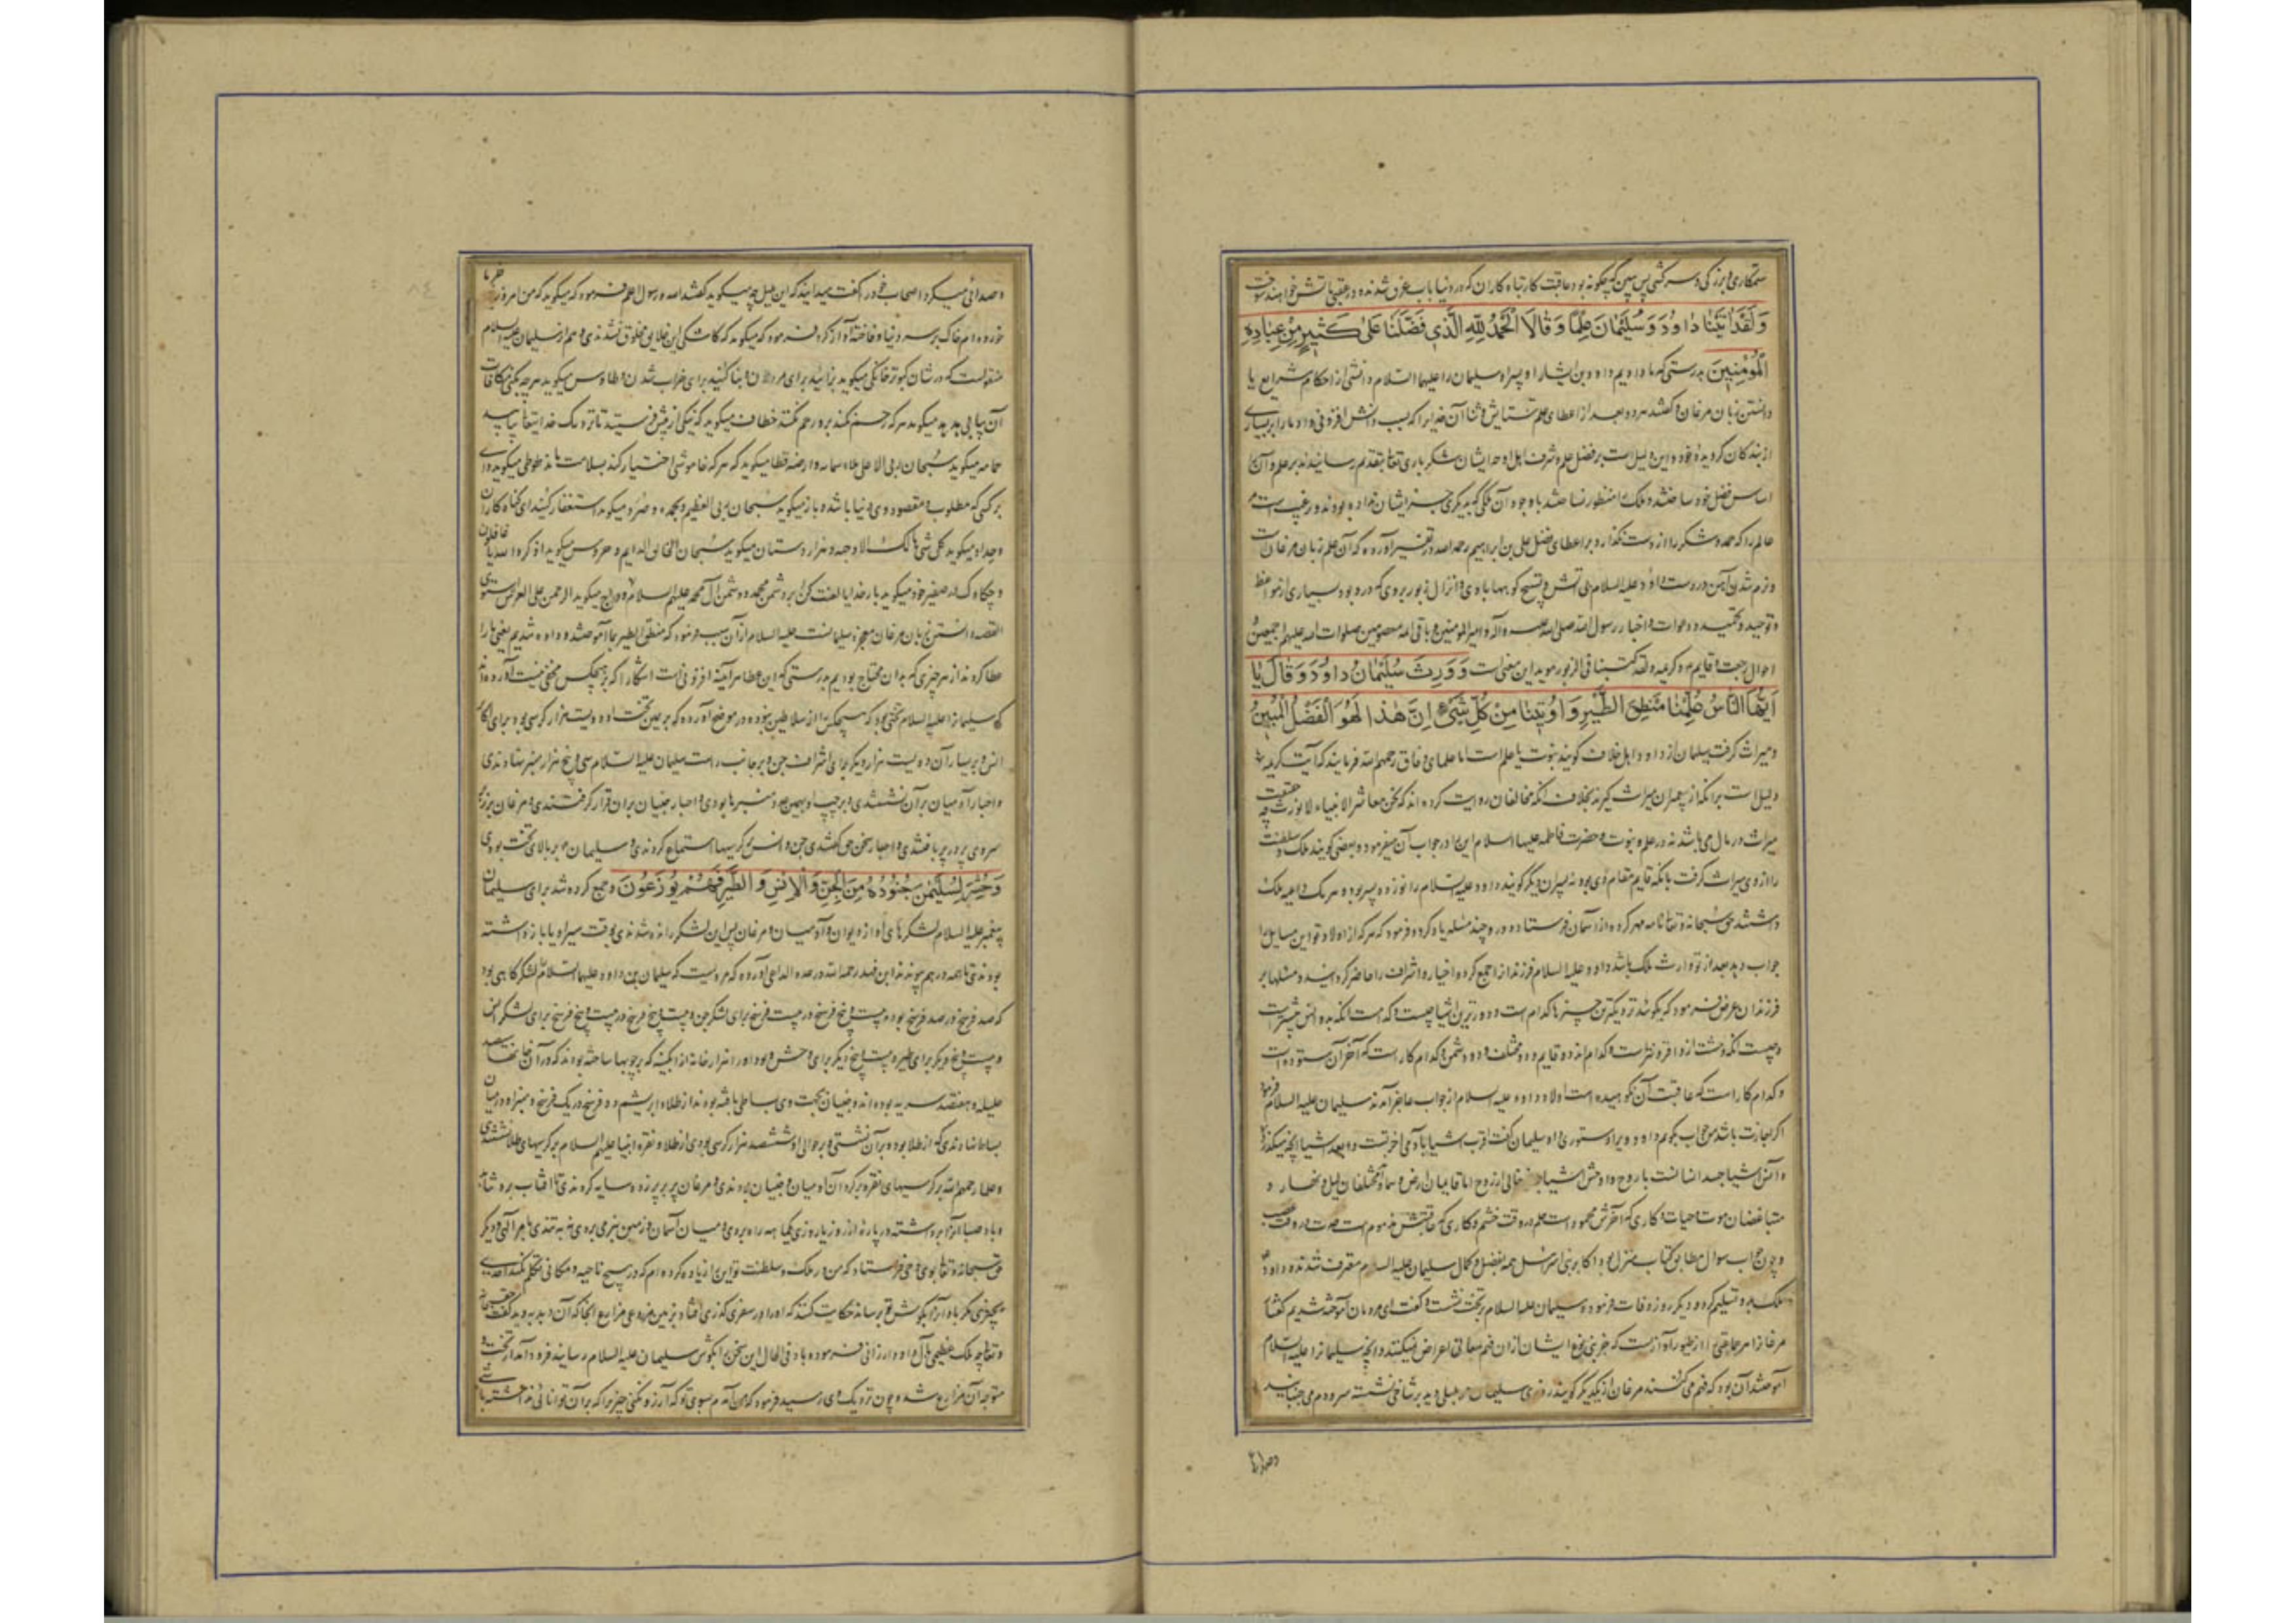 ستمکاری و بزرگی و سرکشی پس ببین که چگونه بود عاقبت کار تباه کاران که در دنیا بآب غرق شدند و در عقبی بآتش خواهند سوخت
وَلَقَدْ اٰتَیْنَا دَاوُدَ وَ سُلَیْمَانَ عِلْمًا وَ قَالَا الْحَمْدُ لِلّٰهِ الَّذی فَضَّلَنَا عَلیٰ کَثیرٍ مِنْ عِبَادِهِ
الْمُؤْمِنینَ بدرستی که ما دادیم داود بن ایشا را و پسر او سلیمان را علیهما السلام دانشی از احکام شرایع یا
دانستن زبان مرغان و گفتند هر دو بعد از اعطای علم ستایش و ثنا آن خدایرا که بسبب دانش افزونی داد ما را بر بسیاری
از بندکان کرویدهٔ خود و این دلیل است بر فضل علم و شرف اهل او حد ایشان شکر باری تعالی بتقدیم رسانیدند بر علم و آن را
اساس فضل خود ساختند و ملک را منظور نساختند باوجود آن ملکی که بدیکری جز ایشان نداده بودند و ترغیب است مر
عالم را که حمد و شکر را از دست نکذارد بر اعطای فضل علی بن ابراهیم رحمه الله در تفسیر آورده که آن علم زبان مرغان است
و نرم شدن آهن در دست داود علیه السلام بی آتش و تسبیح کوهها با وی و انزال زبور بر وی که درو بود بسیاری از مواعظ
و توحید و تمجید و دعوات و اخبار رسول الله صلی الله علیه و آله و امیر المومنین و باقی ائمه معصومین صلوات الله علیهم اجمعین و
احوال رجعت و قایم و کریمه ولقد کتبنا فی الزبور موید این معنی است وَ وَرِثَ سُلَیْمَانُ دَاوُدَ وَ قَالَ یَا
اَیُّهَا النَّاسُ عُلِّمْنَا مَنْطِقَ الطَّیْرِ وَ اُوتینَا مِنْ کُلِّ شَیْءٍ اِنَّ هٰذَا لَهُوَ الْفَضْلُ الْمُبینُ
و میراث گرفت سلیمان از داود اهل خلاف گویند نبوت یا علم است اما علمای وفاق رحمهم الله فرمایند که آیت کریمه
دلیل است بر آنکه از پیغمبران میراث گیرند بخلاف آنکه مخالفان روایت کرده‌اند که نحن معاشر الانبیاء لا نورث چه حقیقت
میراث در مال می باشد نه در علم و نبوت و حضرت فاطمه علیها السلام این را در جواب آن میفرمود و بعضی گویند ملک و سلطنت
را از وی میراث گرفت بآنکه قایم مقام وی بود نه پسران دیگر گویند داود علیه السلام را نوزده پسر بود و هر یک داعیه ملک
داشتند حق سبحانه و تعالی نامه مهر کرده از آسمان فرستاد و درو چند مسله یاد کرد و فرمود که هر که از اولاد تو این مسایل را
جواب دهد بعد از تو وارث ملک باشد داود علیه السلام فرزندان را جمع کرد و اخبار و اشراف را حاضر گردانید و مسلها بر
فرزندان عرض فرمود که بگوئید نزدیکترین چیزها کدام است و دورترین اشیا چیست و کدامست آنکه بدو انس بیشتر است
و چیست آنکه وحشت ازو افزونتر است و کدام‌اند دو قایم و دو مختلف و دو دشمن و کدام کار است که آخر آن ستوده است
و کدام کار است که عاقبت آن نکوهیده است اولاد داود علیه السلام از جواب عاجز آمدند سلیمان علیه السلام فرمود
اگر اجازت باشد من جواب بگویم داود ویرا دستوری داد سلیمان گفت اقرب اشیا بآدمی آخرتست و ابعد اشیا آنچه میگذرد
و آنس اشیا جسد انسانست با روح و اوحش اشیا جسد خالی از روح اما قایمان ارض و سما و مختلفان لیل و نهار و
متباغضان موت و حیات و کاری که آخرش محمود است حلم در وقت خشم و کاری که عاقبتش مذموم است حدت در وقت غضب
و چون جواب سوال مطابق کتاب منزل بود اکابر بنی اسرائیل همه بفضل و کمال سلیمان علیه السلام معترف شدند و داود
ملک بدو تسلیم کرد و دیگر روز وفات فرمود و سلیمان علیه السلام بر تخت نشست و گفت ای مردمان آموخته شدیم گفتار
مرغان را هر جماعتی را از طیور آوازیست که جز بنی نوع ایشان از آن فهم معانی و اعراض نمیکنند و آنچه سلیمان را علیه السلام
آموختند آن بود که فهم می کنند مرغان از یکدیگر گویند روزی سلیمان مر بلبلی دید بر شاخی نشسته سر و دم می جنبانید
و صدائی
و صدائی میکرد اصحاب خود را گفت میدانید که این بلبل چه میگوید گفتند الله و رسوله اعلم فرمود که میگوید که من امروز نیم خرما
خورده ام خاک بر سر دنیا و فاخته آواز کرد فرمود که میگوید کاشکی این خلایق مخلوق نشدندی و هم از سلیمان علیه السلام
منقولست که ورشان کبوتر خانگی میگوید بزایید برای مردن و بنا کنید برای خراب شدن و طاوس میگوید هرچه بکنی مکافات
آن بیابی هدهد میگوید هر که رحم نکند برو رحم نکنند خطاف میگوید که نیکی از پیش فرستید تا نزدیک خدایتعالی بیابید
حمامه میگوید سبحان ربی الاعلی ملاء سمائه و ارضه قطا میگوید که هر که خاموشی اختیار کند بسلامت ماند طوطی میگوید وای
بر کسی که مطلوب و مقصود وی دنیا باشد و باز میگوید سبحان ربی العظیم و بحمده و صرد میگوید استغفار کنید ای گناه کاران
و حداه میگوید کل شی هالک الا وجهه و هزار دستان میگوید سبحان الخالق الدایم و خروس میگوید اذکروا الله یا غافلون
و چکاوک در صفیر خود میگوید بار خدایا لعنت کن بر دشمن محمد و دشمن آل محمد علیهم السلام و دراج میگوید الرحمن علی العرش استوی
القصه دانستن زبان مرغان معجزه سلیمانست علیه السلام از آن سبب فرمود که منطق الطیر بما آموختند و داده شدیم یعنی ما را
عطا کردند از هر چیزی که بدان محتاج بودیم بدرستی که این عطا هر آینه افزونی است آشکارا که بر هیچکس مخفی نیست آورده اند
که سلیمان را علیه السلام تختی بود که هیچکس را از سلاطین نبوده و در موضح آورده که بر یمین تخت او دویست هزار کرسی بود برای اکابر
انس و بر یسار آن دویست هزار دیگر برای اشراف جن و بر جانب راست سلیمان علیه السلام سی و پنج هزار منبر نهادندی
و احبار آدمیان بر آن نشستندی و بر چپ او بهمین عدد منبرها بودی و احبار جنیان بر آن قرار گرفتندی و مرغان بزرگ
سر وی پر در پر بافتندی و احبار سخن می گفتندی جن و انس از کرسیها استماع کردندی و سلیمان بر بالای تخت بودی
وَ حُشِرَ لِسُلَیْمٰنَ جُنُودُهُ مِنَ الْجِنِّ وَ الْاِنْسِ وَ الطَّیْرِ فَهُمْ یُوزَعُونَ و جمع کرده شد برای سلیمان
پیغمبر علیه السلام لشکرهای او از دیوان و آدمیان و مرغان پس این لشکر رانده شدندی بوقت سیر او یا بازداشته
بودندی تا همه در هم پیوندند ابن فهد رحمه الله در عده الداعی آورده که مرویست که سلیمان بن داود علیهما السلام را لشکرگاهی بود
که صد فرسخ در صد فرسخ بود بیست و پنج فرسخ در بیست فرسخ برای لشکر جن و بیست و پنج فرسخ در بیست و پنج فرسخ برای لشکر انس
و بیست و پنج دیگر برای طیر و بیست و پنج دیگر برای وحش و بود او را هزار خانه از آبگینه که بر چوبها ساخته بودند که در آن خانها سیصد
حلیله و هفتصد سریه بوده اند و جنیان بجهت وی بساطی بافته بودند از طلا و ابریشم دو فرسخ در یک فرسخ و منبر او در میان
بساط نهادندی که از طلا بود و بر آن نشستی و بر حوالی او ششصد هزار کرسی بودی از طلا و نقره انبیا علیهم السلام بر کرسیهای طلا نشستندی
و علما رحمهم الله بر کرسیهای نقره برگرد آن آدمیان و جنیان بودندی و مرغان پر بر پر زده سایه کردندی تا آفتاب برو نتابد
و باد صبا آنرا برداشته در پاره از روز یا روزی یکماهه راه بردی و میان آسمان و زمین بنرمی بردی نه بتندی بامر الهی و دیگر
حق سبحانه و تعالی بوی وحی فرستاد که من در ملک و سلطنت تو این را زیاده کرده ام که در هیچ ناحیه و مکانی تکلم نکند احدی
بچیزی مگر باد آنرا بگوش تو برساند حکایت کنند که او را در سفری گذری افتاد بزمین مزروعی مزارع آنجا که آن دبدبه دید گفت حق سبحانه
و تعالی چه ملک عظیمی بآل داود ارزانی فرموده باد فی الحال این سخن را بگوش سلیمان علیه السلام رسانید فرود آمد از تخت و
متوجه آن مزارع شد و چون نزدیک وی رسید فرمود که من آمدم بسوی تو که آرزو نکنی چیزی را که بر آن توانائی نداشته باشی